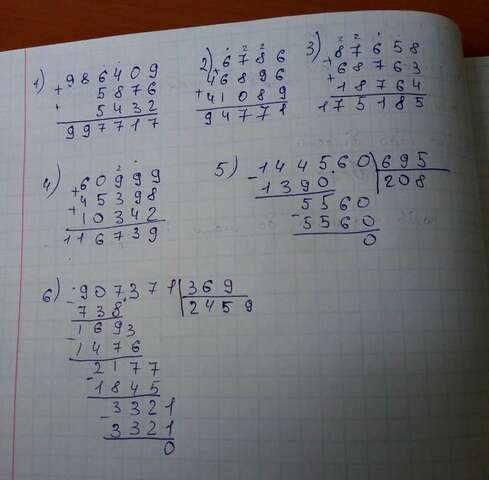 1)
986409
+ 5876
+ 5432
997717
2)
6786
+ 46896
+ 41089
94771
3)
87658
+ 68763
+ 18764
175185
4)
60999
+ 45398
+ 10342
116739
5)
- 144560 | 695
1390 | 208
5560
- 5560
0
6)
- 907371 | 369
738 | 2459
- 1693
1476
- 2177
1845
- 3321
3321
0